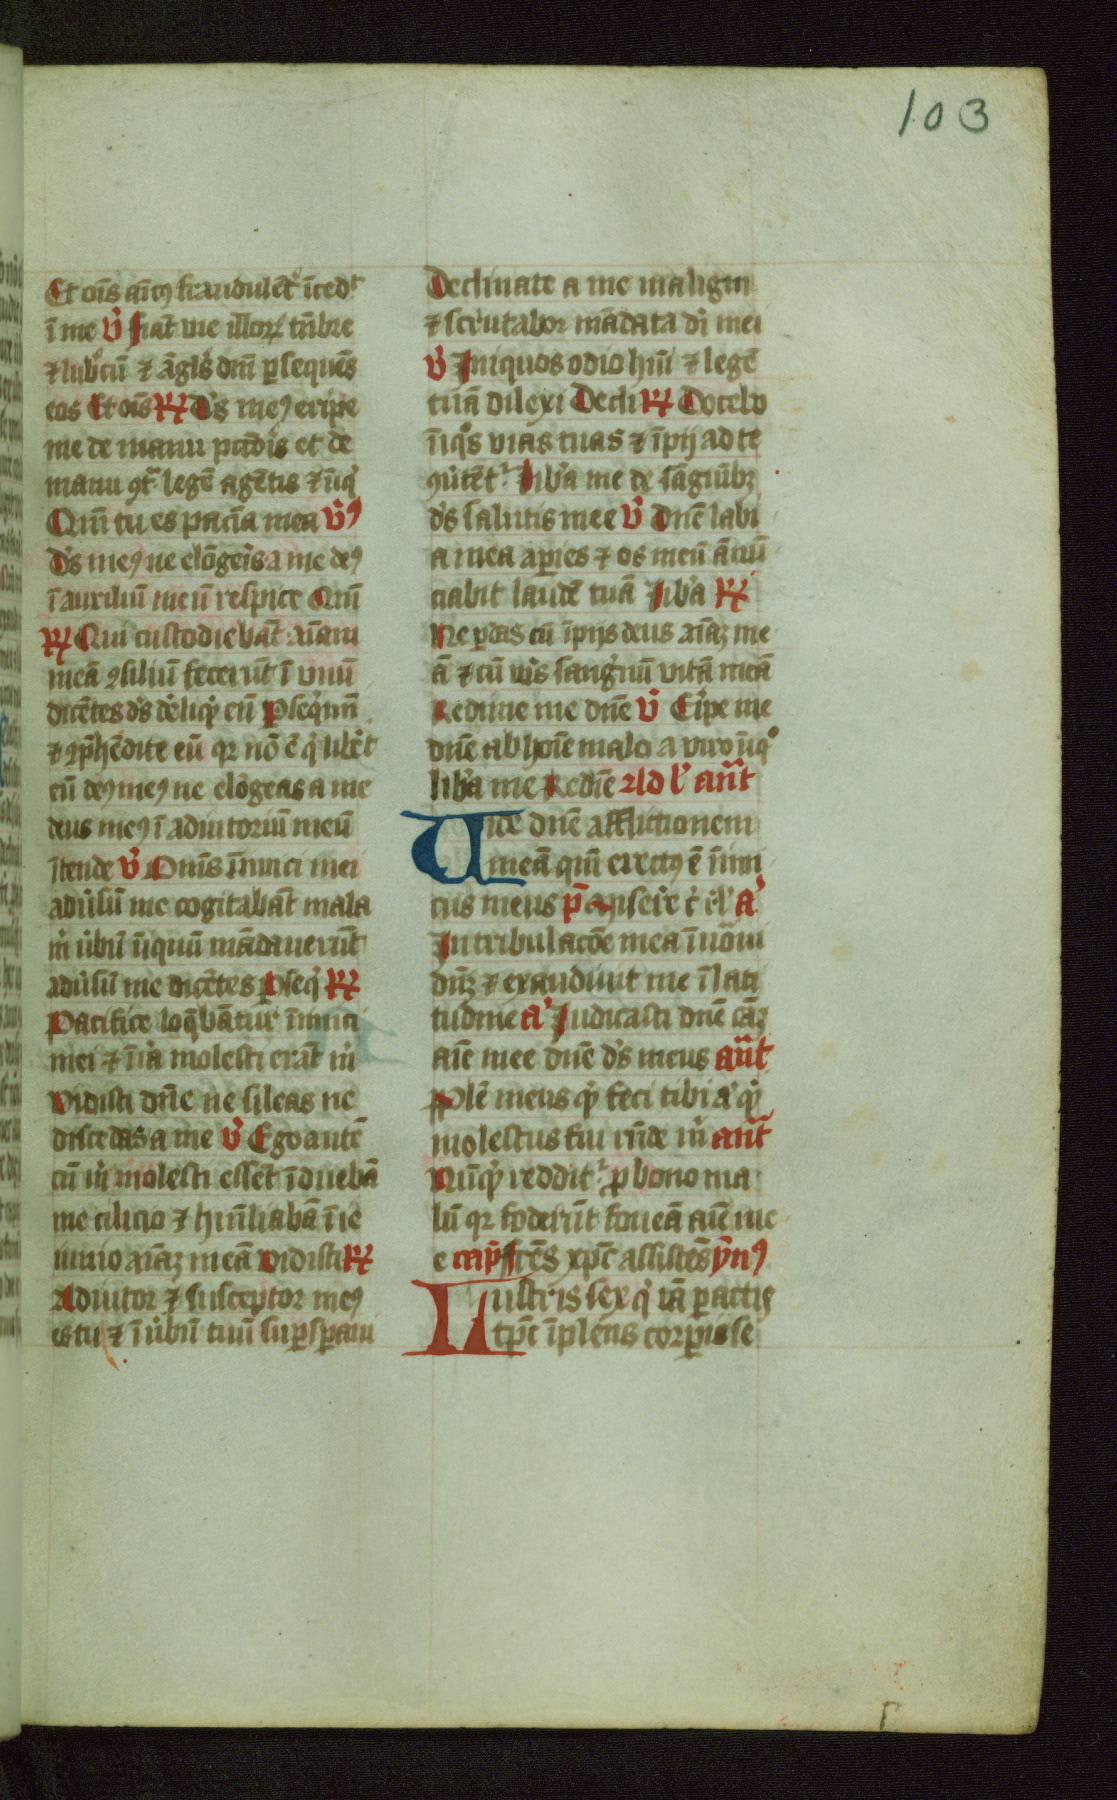 103
Et oīs aīcꝰ fraudulēt̾ īced᷑
ī me v̄ fiāt vie illoꝝ tn̄bre
⁊ lubͦcū ⁊ āgl̾s dn̄i ꝑsequēs
eos Et oīs ℟ D̾s meꝰ eripe
me de manu pctōris et de
manu ꝯt̾ legē agētis ⁊ iīq̾
Qm̄ tu es pacīa mea v̄ꝰ
D̾s meꝰ ne elōgeis a me deꝰ
ī auxiliū meū respice Qm̄
℟ Qui custodiebāt aīam
meā ꝯsiliū fecerūt ī vnū
dicētes d̾s de̾liqͥt eū ꝑseqͥmī
⁊ ꝯp̄hēdite eū qꝛ nō ē qͥ libēt
eū deꝰ meꝰ ne elōgeas a me
deus meꝰ ī adiutoriū meū
ītende v̄ Om̄s īimici mei
adūsū me cogitabāt mala
m̄ v̄bū īiquū mādauerūt
adūsū me dicētes ꝑseqͥ ℟
Pacifice loq̄bātur īimici
mei ⁊ ī ira molesti erāt m̄
Vidisti dn̄e ne sileas ne
discedas a me v̄ Ego autē
cū m̄ molesti essēt īduebā
me cilicio ⁊ hūiliabā ī ie
iunio aīaꝫ meā vidisti ℟
Adiutor ⁊ susceptor meꝰ
es tu ⁊ ī v̄bū tuū suꝑsꝑaui
Declinate a me maligni
⁊ scrutabor mādata dī mei
v̄ Iniquos odio hūi ⁊ legē
tuā dilexi Decli ℟ Docebo
īiqͦs vias tuas ⁊ īpij ad te
ꝯūtēt᷑ Libͣa me de sāguībꝫ
d̾s salutis mee v̄ Dn̄e labi
a mea aꝑies ⁊ os meū ānū
ciabit laudē tuā Libͣa ℟
Ne ꝑdas cū īpijs deus aīaꝫ me
ā ⁊ cū viris sanguīū vitā meā
Redime me dn̄e v̄ Eripe me
dn̄e ab hoīe malo a viro īiqͦ
libͣa me Redīe Ad l̾ an̄t
Vide dn̄e afflictionem
meā qm̄ erectꝰ ē īimi
cus meus p̄ Miserē
In tribulacōe mea īuocaui
dn̄ꝫ ⁊ exaudiuit me ī lati
tudine a̾ Iudicasti dn̄e cāꝫ
aīe mee dn̄e d̾s meus an̄t
Pople meus qͥd feci tibi a̾ qͥd
molestus fui rn̄de m̄ an̄t
Nūqͥd reddit᷑ ꝓ bono ma
lū qꝛ foderūt foueā aīe me
e cap̄ Frēs xp̄c assistēs yn̄ꝰ
Lustris sex qͥ iā ꝑactis
tp̄c īplens corꝑis se